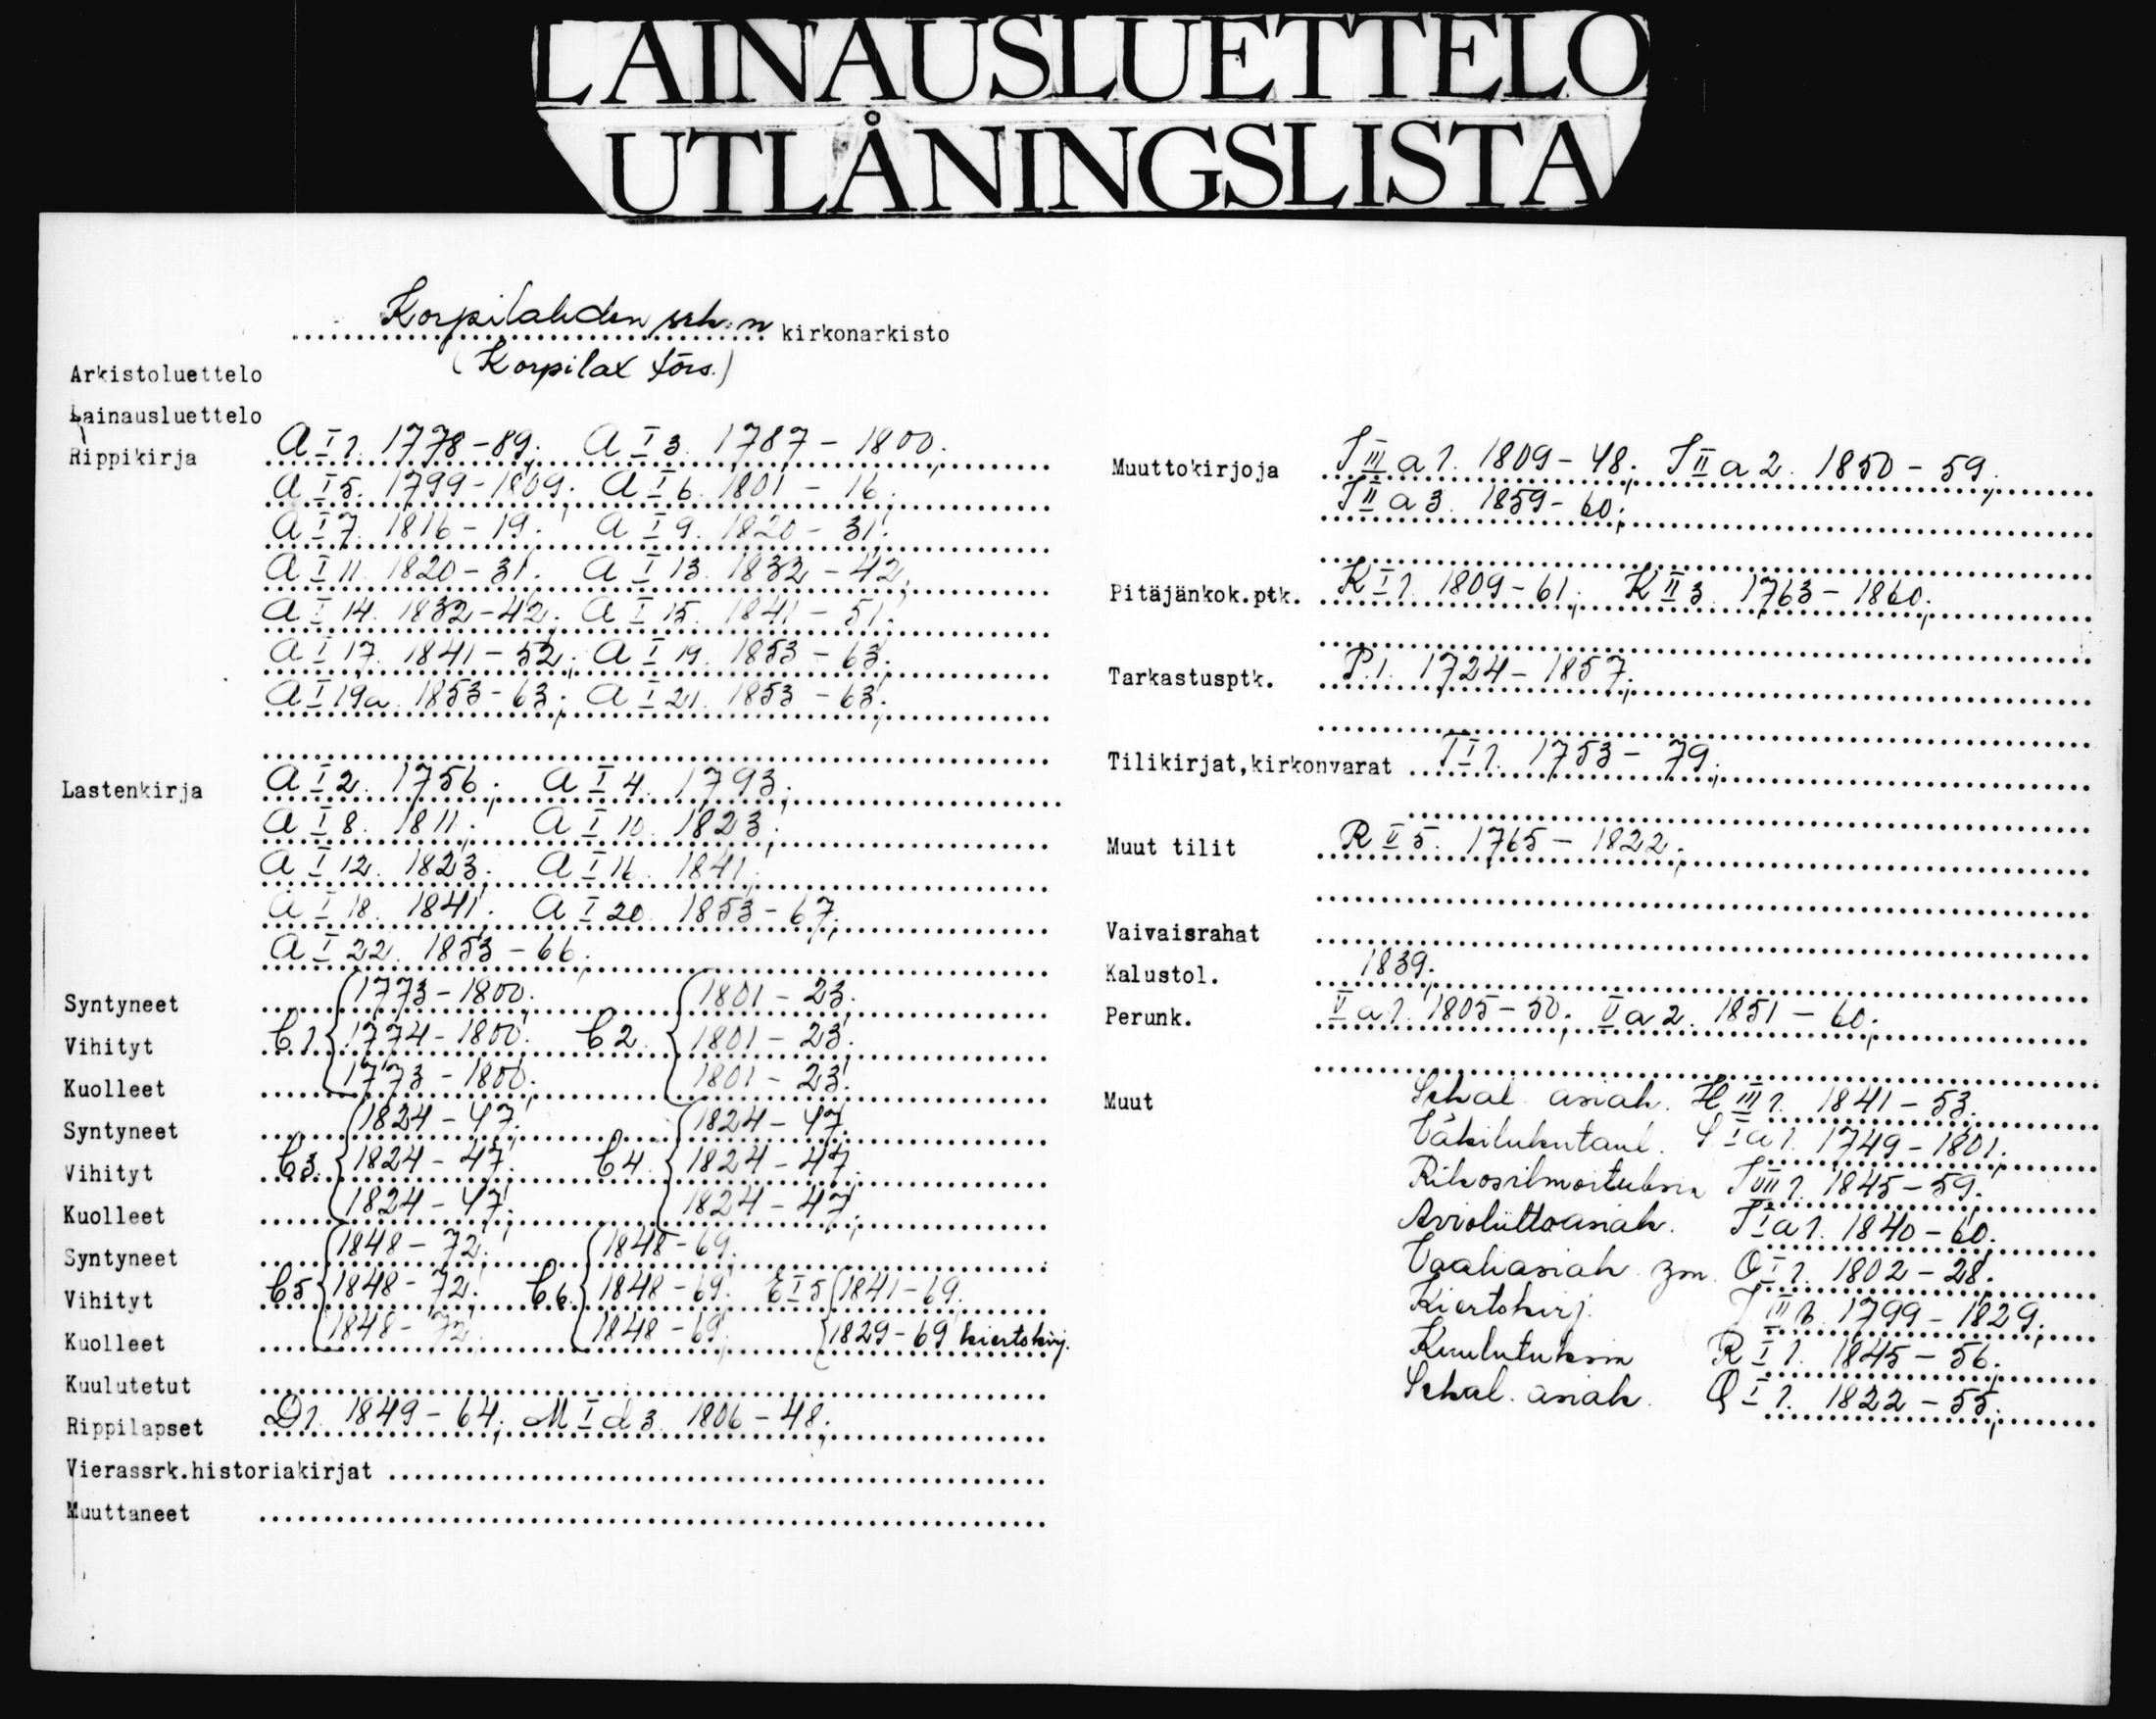 LAINAUSLUETTELO
UTLÅNINGSLISTA
Korpilahden srk:n kirkonarkisto
(Korpilax förs.)
Arkistoluettelo
Lainausluettelo
Rippikirja A I 1. 1778-89; A I 3. 1787-1800;
A I 5. 1799-1809; A I 6. 1801-16;
A I 7. 1816-19; A I 9. 1820-31;
A I 11. 1820-31; A I 13. 1832-42;
A I 14. 1832-42; A I 15. 1841-51;
A I 17. 1841-52; A I 19. 1853-63;
A I 19a. 1853-63; A I 21. 1853-63;
Lastenkirja A I 2. 1756; A I 4. 1793;
A I 8. 1811; A I 10. 1823;
A I 12. 1823; A I 16. 1841;
A I 18. 1841; A I 20. 1853-67;
A I 22. 1853-66;
Syntyneet 1773-1800; 1801-23;
Vihityt C1 1774-1800; C2. 1801-23;
Kuolleet 1773-1800; 1801-23;
Syntyneet 1824-47; 1824-47;
Vihityt C3. 1824-47; C4. 1824-47;
Kuolleet 1824-47; 1824-47;
Syntyneet 1848-72; 1848-69;
Vihityt C5 1848-72; C6. 1848-69; E I 5 1841-69;
Kuolleet 1848-72; 1848-69; 1829-69 kiertokirj.
Kuulutetut
Rippilapset D1. 1849-64; M I d 3. 1806-48;
Vierassrk.historiakirjat
Muuttaneet
Muuttokirjoja J III a 1. 1809-48; J II a 2. 1850-59;
J II a 3. 1859-60;
Pitäjänkok.ptk. K I 1. 1809-61; K II 3. 1763-1860;
Tarkastusptk. P.1. 1724-1857;
Tilikirjat,kirkonvarat T I 1. 1753-79;
Muut tilit R II 5. 1765-1822;
Vaivaisrahat
Kalustol. 1839;
Perunk. V a 1. 1805-50; V a 2. 1851-60;
Muut Sekal. asiak. H III 1. 1841-53;
Väkilukutaul. S I a 1. 1749-1801;
Rikosilmoituksia J VII 1. 1845-59;
Avioliittoasiak. J I a 1. 1840-60;
Vaaliasiak. ym. O I 1. 1802-28;
Kiertokirj. J III b. 1799-1829;
Kuulutuksia R I 1. 1845-56;
Sekal. asiak. Q I 1. 1822-55;